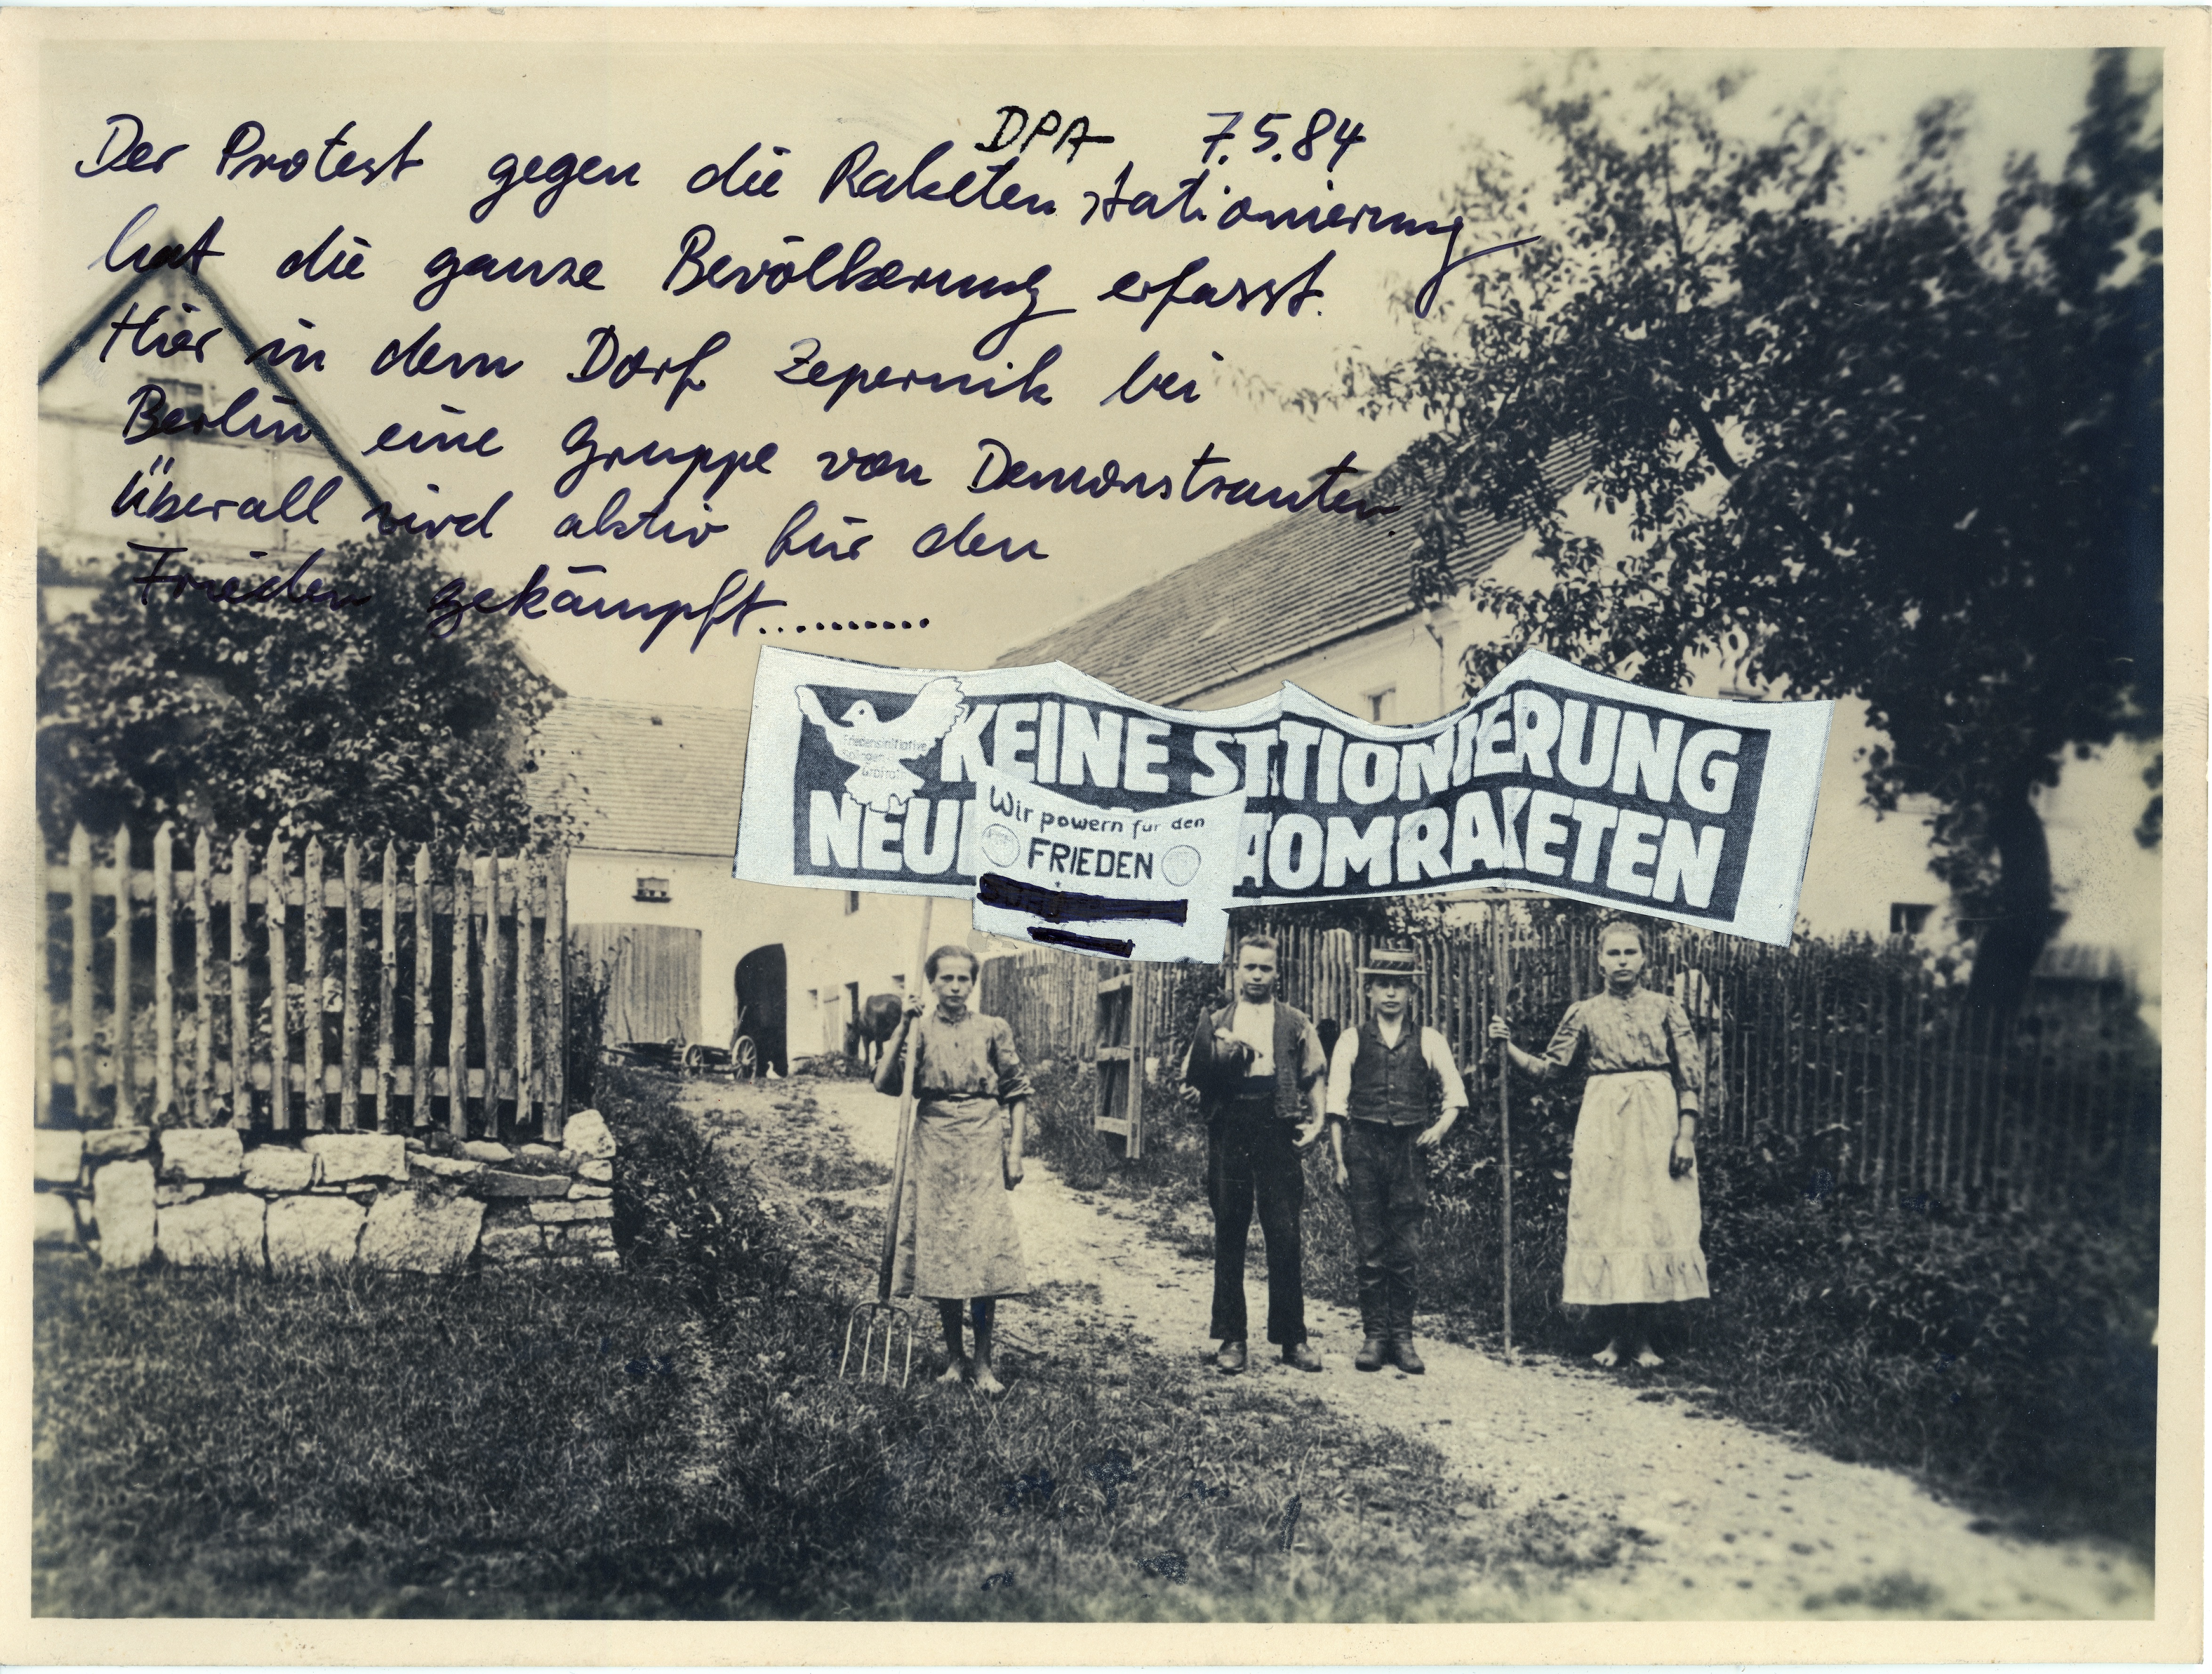 DPA 7.5.84
Der Protest gegen die Raketenstationierung
hat die ganze Bevölkerung erfasst.
Hier in dem Dorf Zepernik bei
Berlin eine Gruppe von Demonstranten.
Überall wird aktiv für den
Frieden gekämpft..........
KEINE STTIONIERUNG
NEU ATOMRAKETEN
Friedensinitiative
Wir powern für den
FRIEDEN